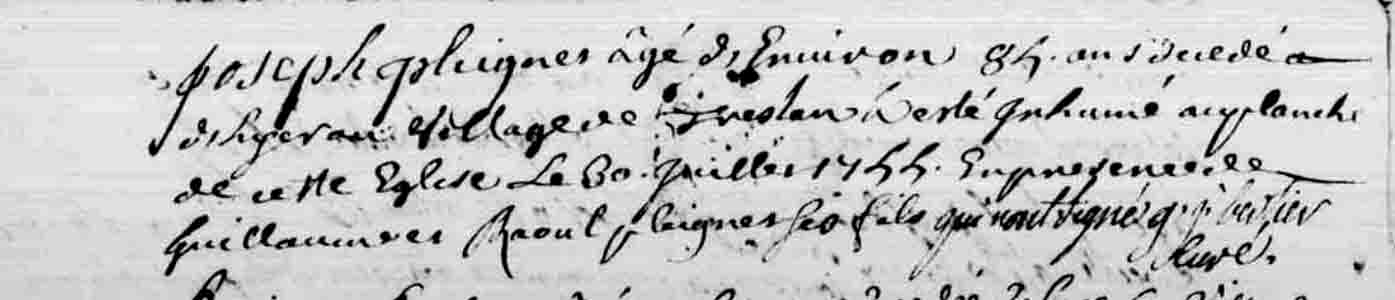 joseph pluigner âgé d'Environ 85. ans decedé a
d'hyer au village de Trestan a esté jnhumé au planch
de cette Eglise Le 30. juillet 1755. En presence de
guillaume et Raoul pluigner ses fils qui n'ont signé
Curé.